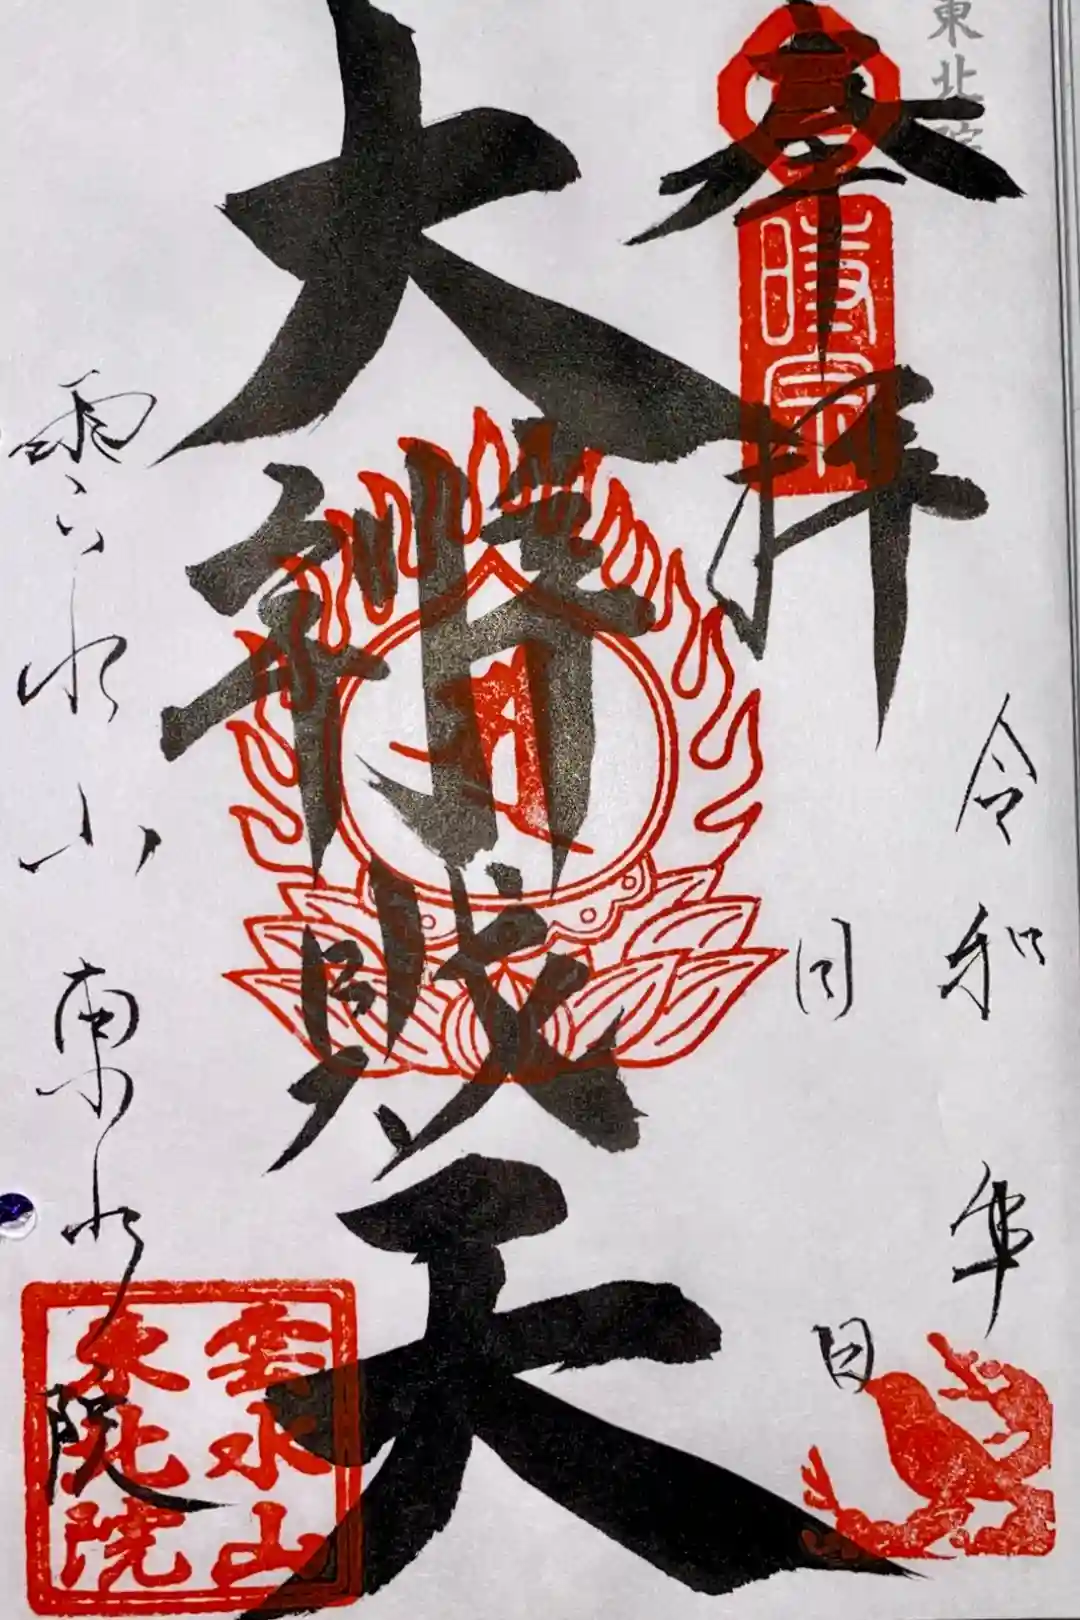 東北院
奉拝
時宗
令和 年
月 日
大辨財天
雲水山 東北院
雲水山
東北院